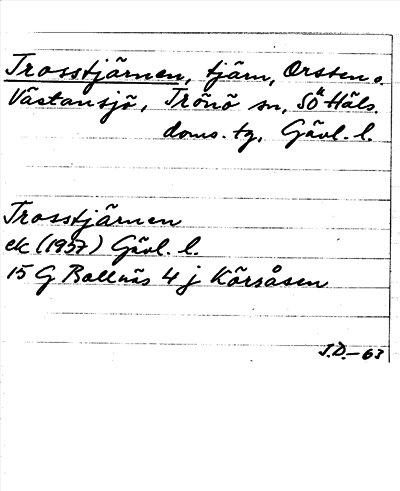 Trosstjärnen, tjärn, Orsten o.
Västansjö, Trönö sn, Sö Häls.
doms. tg, Gävl. l.
Trosstjärnen
ek (1957) Gävl. l.
15 G Bollnäs 4 j Körsåsen
J.D.–63